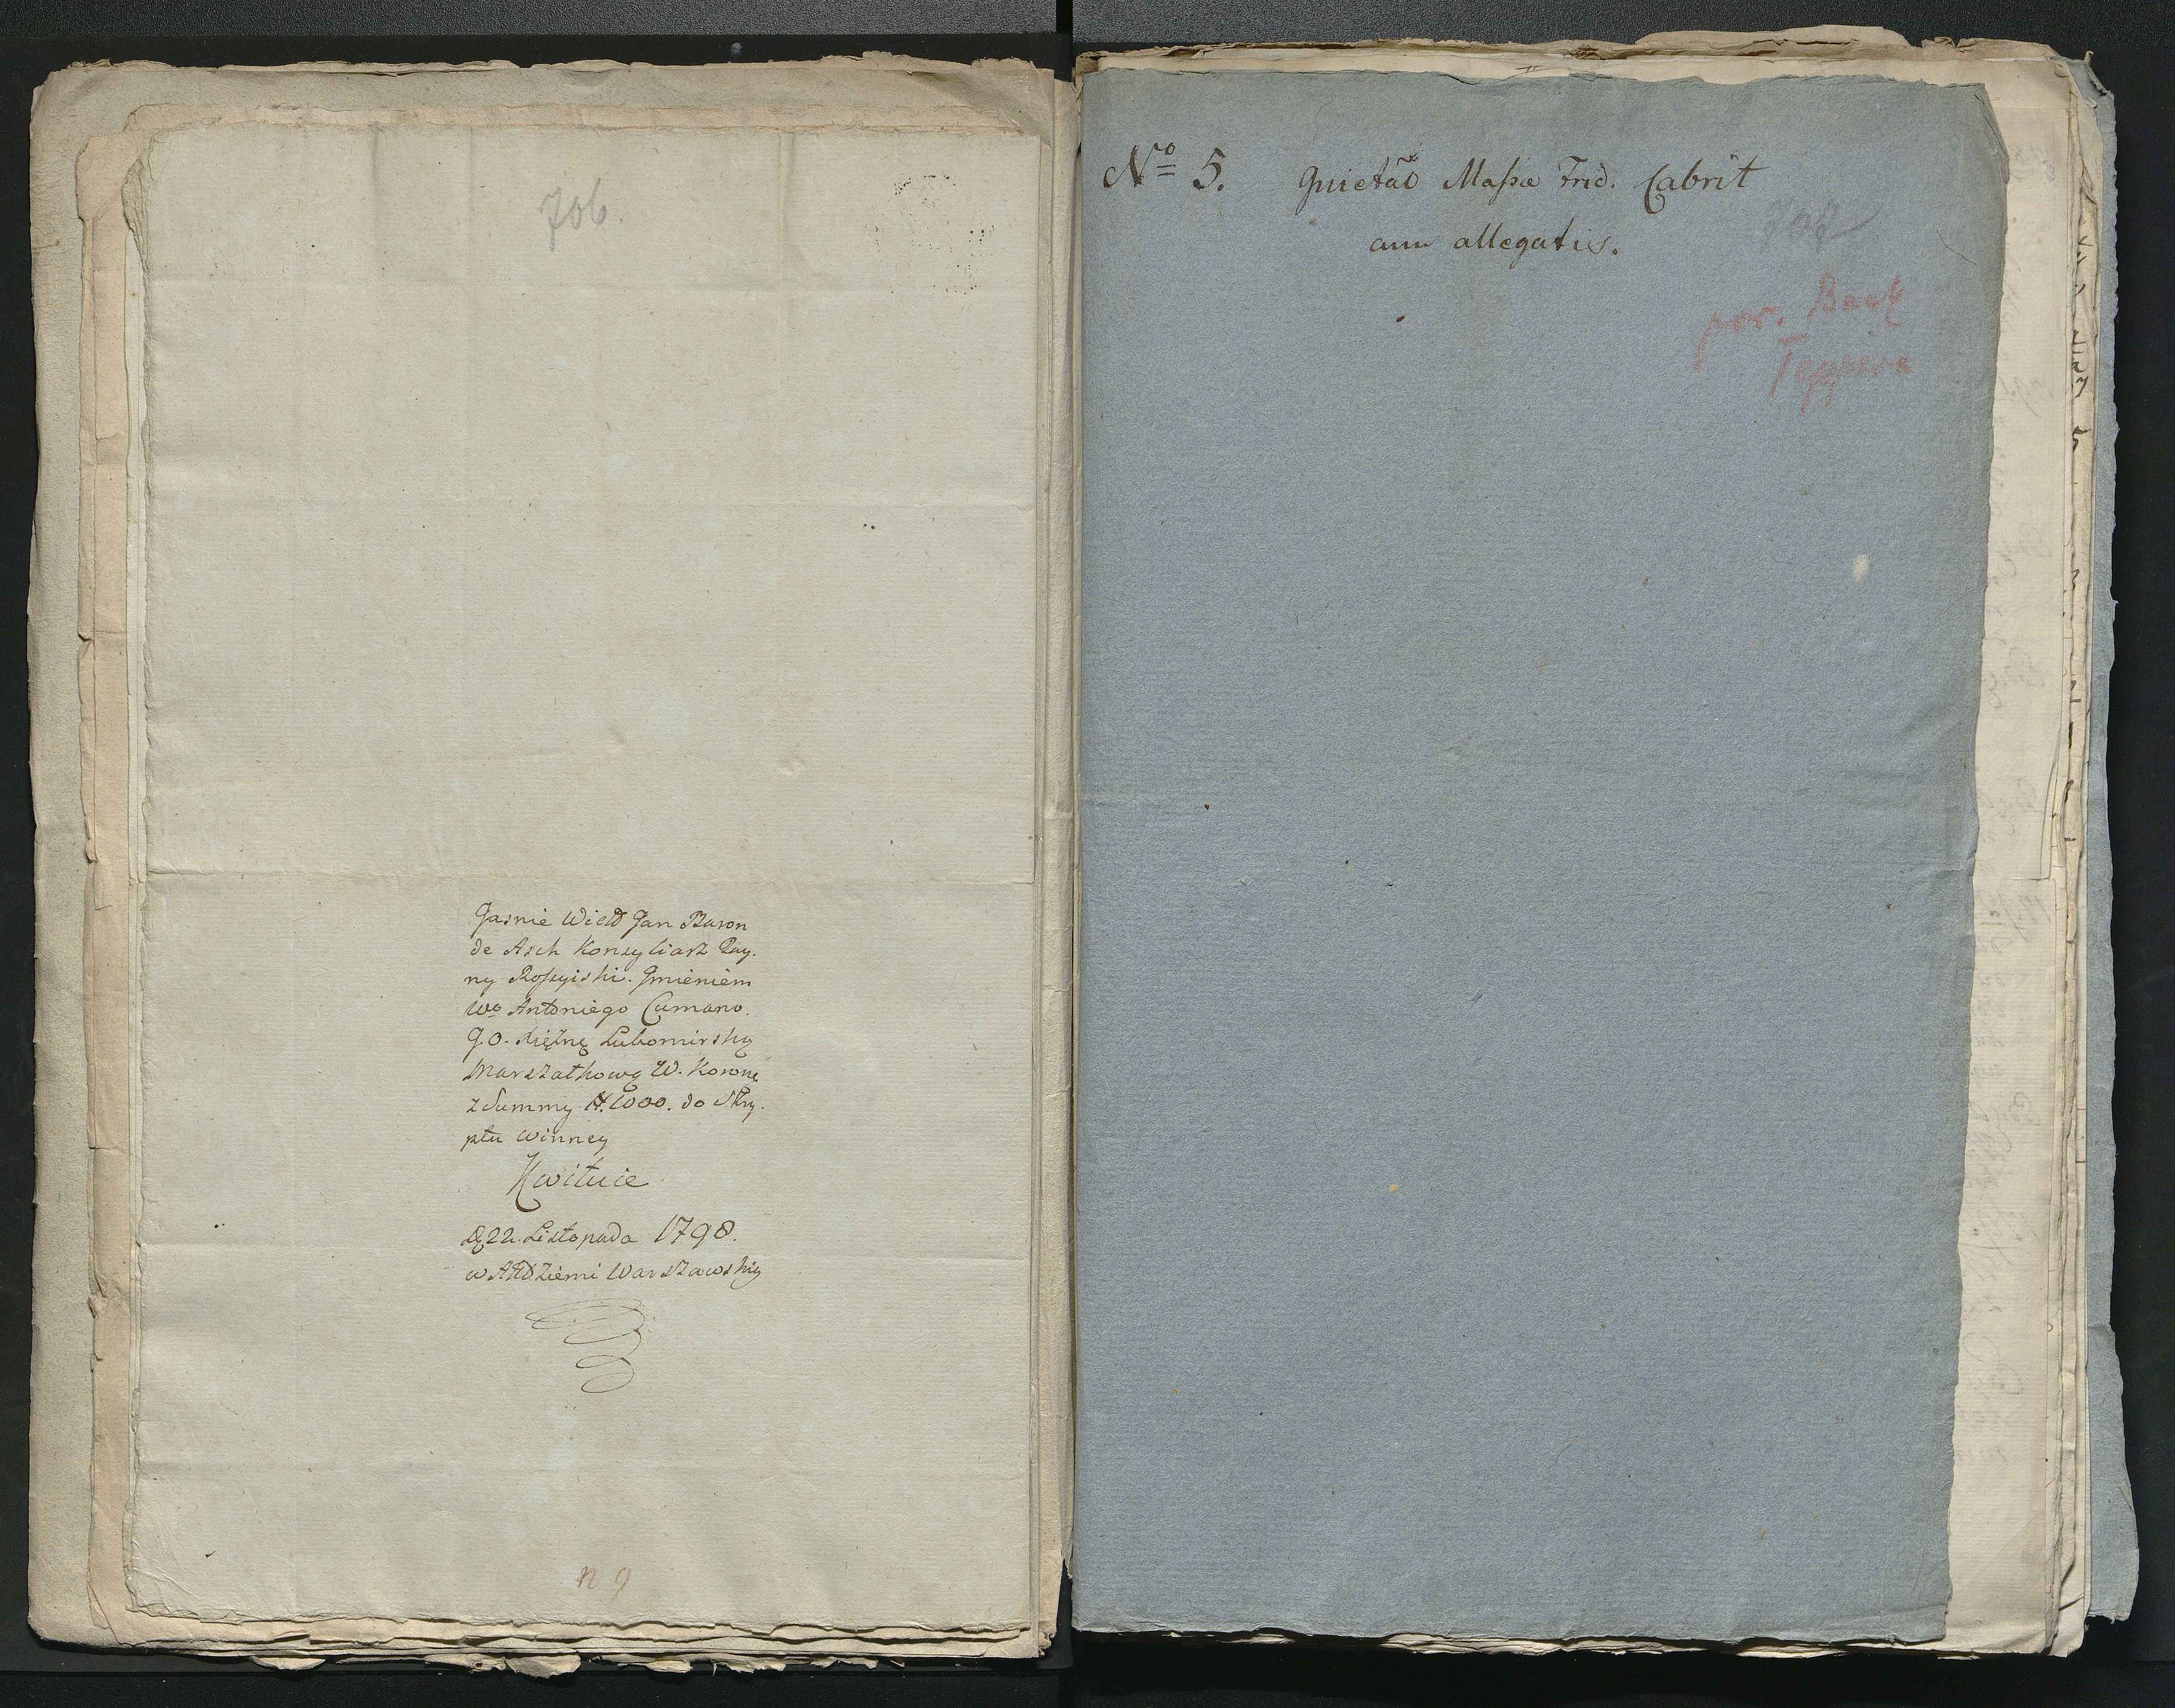 706.
Jasnie Wielḿ Jan Baron
de Asch Konsyliarz Tay-
ny Rossyiski. Jmieniem
Wo Antoniego Cumano.
J.O. Xiężnę Lubomirską
Marszałkową W. Koronną
z Summy # 1000. do Skry-
ptu winney
Kwituie
22. Listopada 1798.
w Ziemi Warszawskiey
n 9
No 5. Quietão Massæ Frid. Cabrit
cum allegatis.
707
por. Bank
Teppera